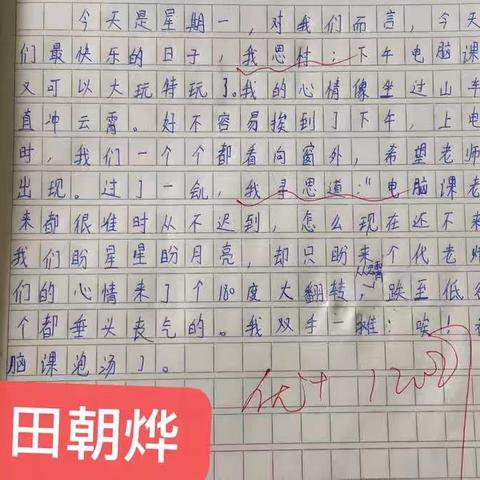 今天是星期一,对我们而言,今天
们最快乐的日子,我思忖:下午电脑课
又可以大玩特玩了。我的心情像坐过山车
直冲云霄。好不容易挨到了下午,上电
时,我们一个个都看向窗外,希望老师
出现。过了一会,我寻思道:"电脑课老
来都很准时从不迟到,怎么现在还不来
我们盼星星盼月亮,却只盼来个代老师
们的心情来了个180度大翻转,从云霄跌至低
个都垂头丧气的。我双手一摊:唉!
脑课泡汤了。
优+
田朝烨